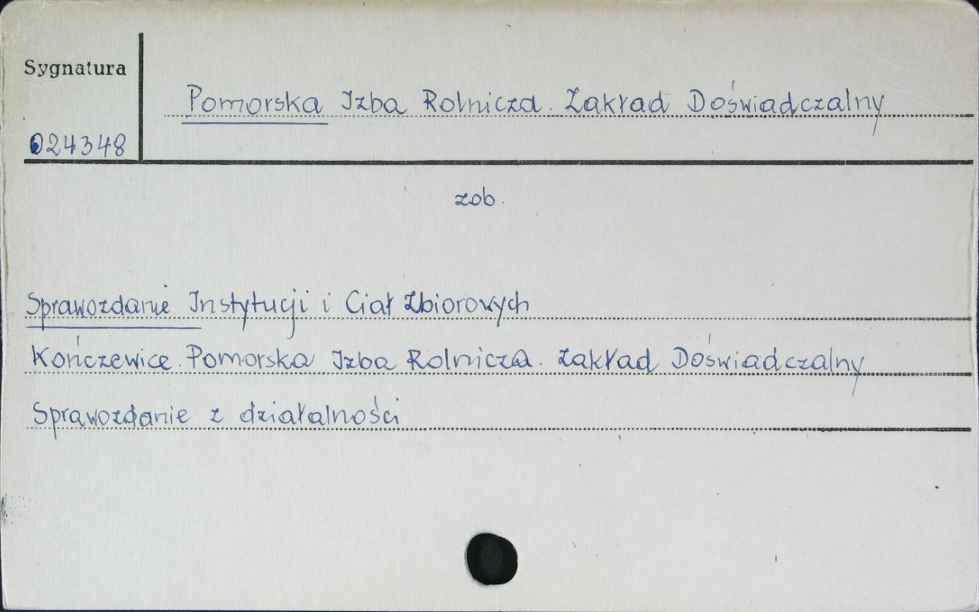 Sygnatura
Pomorska Izba Rolnicza. Zakład Doświadczalny
024348
zob.
Sprawozdanie Instytucji i Ciał Zbiorowych
Kończewice. Pomorska Izba Rolnicza. Zakład Doświadczalny
Sprawozdanie z działalności